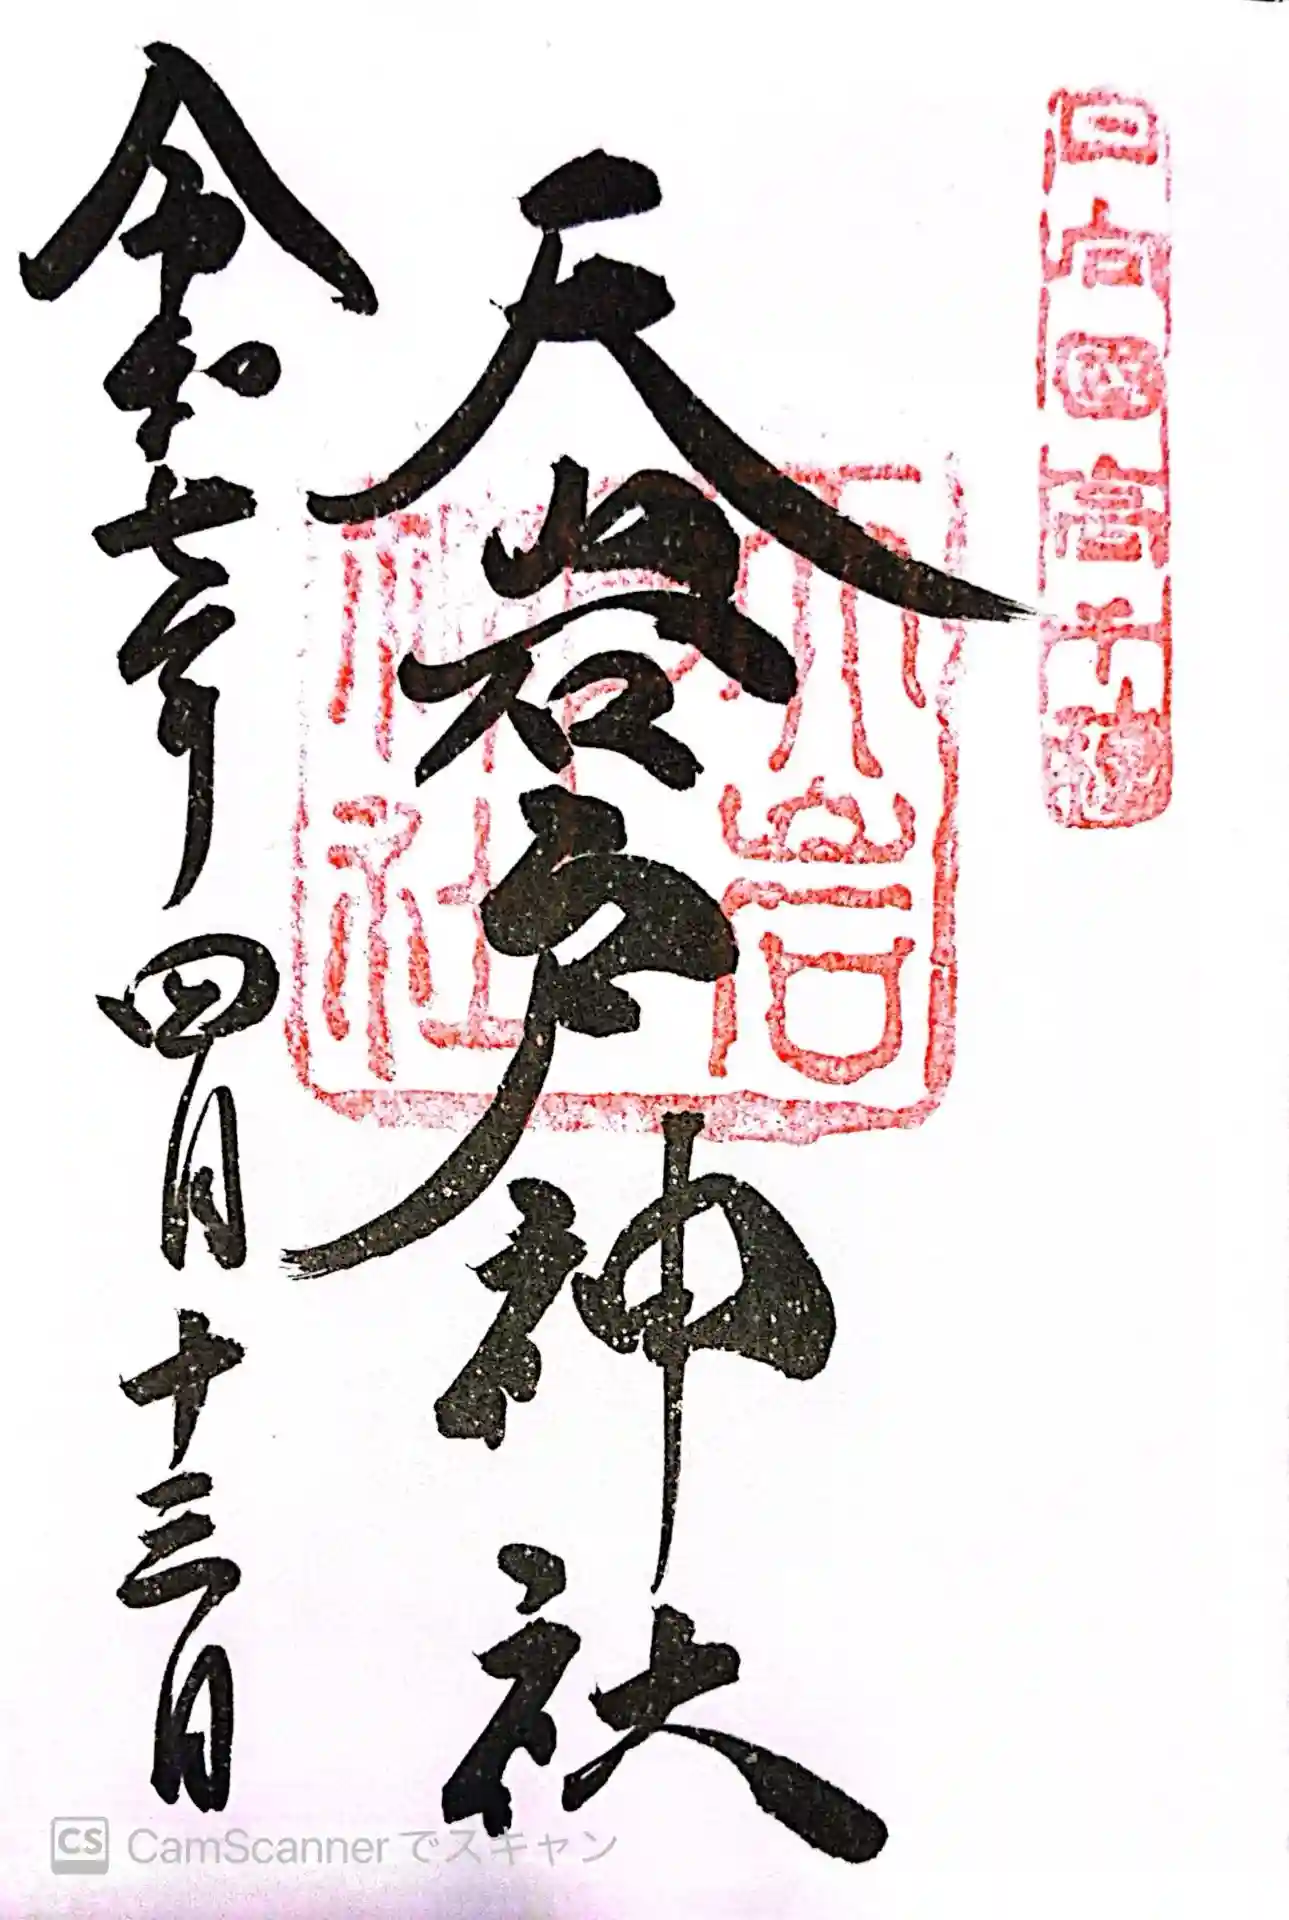 日向國高千穂
天岩戸神社
天岩
神社
令和七年四月十三日
CS CamScannerでスキャン